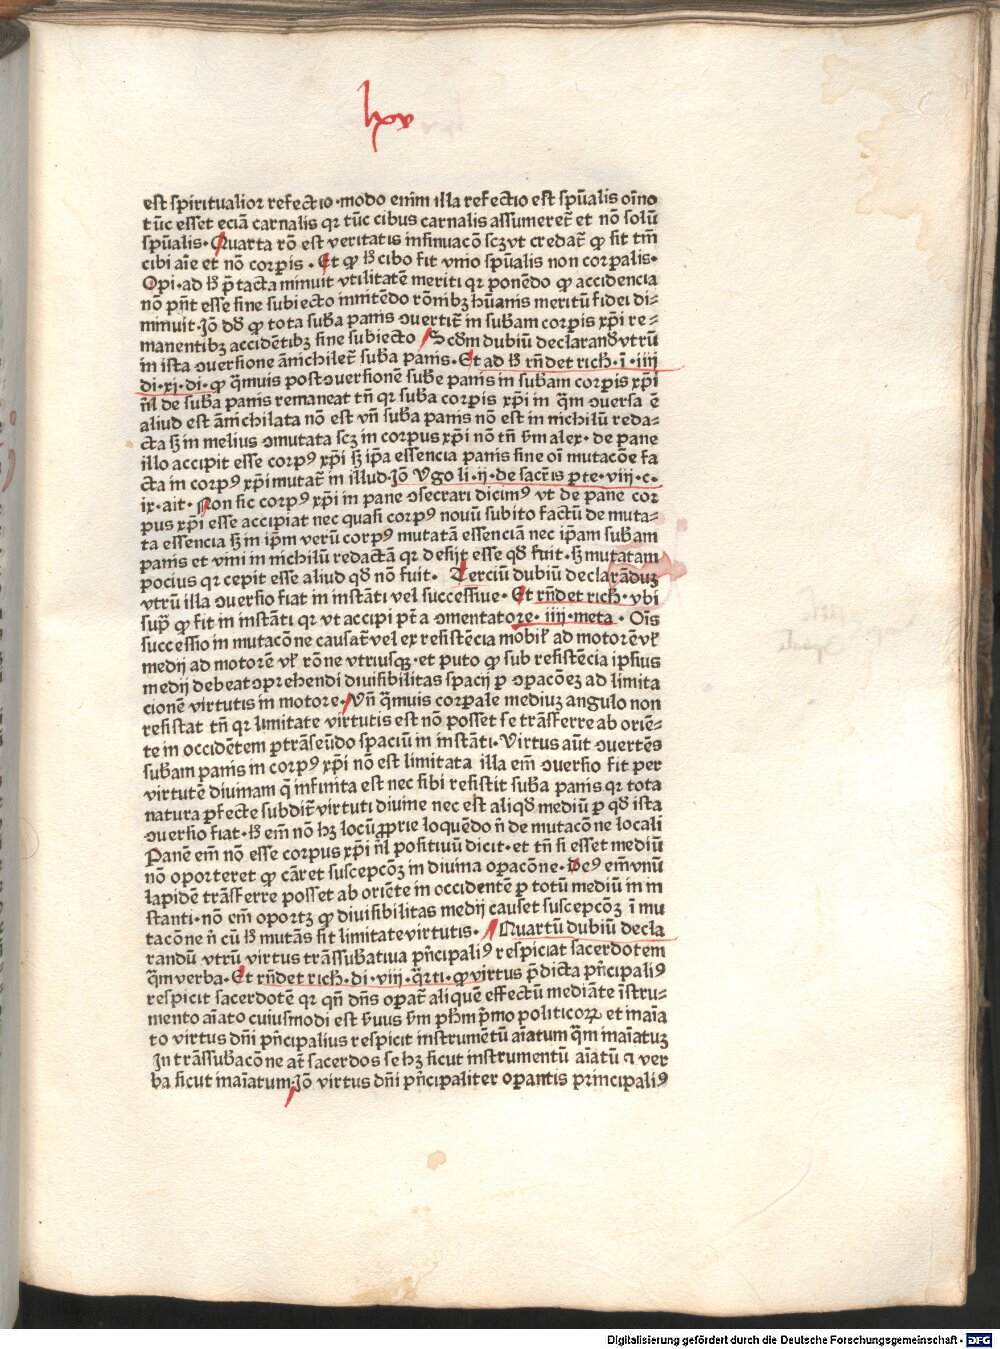 est spiritualior refectio·modo enim illa refectio est spūalis oīno
tūc esset eciā carnalis qꝛ tūc cibus carnalis assumeret̄ et nō solū
spūalis·Quarta rō est veritatis insinuacō sczvt credat̄ ꝙ sit tm̄
cibi aīe et nō corpis·Et ꝙ h̄ cibo fit vnio spūalis non corpalis·
Opi·ad h̄ p̄tacta minuit vtilitatē meriti qꝛ ponēdo ꝙ accidencia
nō pn̄t esse sine subiecto innitēdo rōnibꝫ hūanis meritū fidei di⸗
minuit·Jō dd̄ ꝙ tota sub̄a panis ꝯuertit̄ in sub̄am corpis xp̄i re⸗
manentibꝫ accidētibꝫ sine subiecto Scd̄m dubiū declarandūvtrū
in ista ꝯuersione ānichilet̄ sub̄a panis·Et ad h̄ rn̄det rich·ī·iiij
di·xj·di·ꝙ q̄muis postꝯuersionē sub̄e panis in sub̄am corpis xp̄i
n̄l de sub̄a panis remaneat tn̄ qꝛ sub̄a corpis xp̄i in q̄m ꝯuersa ē
aliud est ānichilata nō est vn̄ sub̄a panis nō est in nichilū reda⸗
cta sꝫ in melius ꝯmutata scꝫ in corpus xp̄i nō tn̄ s̄m alex·de pane
illo accipit esse corpꝰ xp̄i sꝫ ip̄a essencia panis sine oī mutacōe fa
cta in corpꝰ xp̄i mutat̄ in illud·Jō Vgo li·ij·de sacr̄is ꝑte·viij·c·
ix·ait·Non sic corpꝰ xp̄i in pane ꝯsecrari dicimꝰ vt de pane cor
pus xp̄i esse accipiat nec quasi corpꝰ nouū subito factū de muta⸗
ta essencia sꝫ in ip̄m verū corpꝰ mutatā essenciā nec ip̄am sub̄am
panis et vini in nichilū redactā qꝛ desijt esse qd̄ fuit·sꝫ mutatam
pocius qꝛ cepit esse aliud qd̄ nō fuit· Terciū dubiū declarāduꝫ
vtrū illa ꝯuersio fiat in instāti vel successiue·Et rn̄det rich·vbi
sup̄ ꝙ fit in instāti qꝛ vt accipi pt̄ a ꝯmentatore·iiij·meta·Oīs
successio in mutacōne causat̄ vel ex resistēcia mobil̄ ad motorē vl̄
medij ad motorē vl̄ rōne vtriusqꝫ·et puto ꝙ sub resistēcia ipsius
medij debeat ꝯprehendi diuisibilitas spacij ꝑ ꝯpacōeꝫ ad limita
cionē virtutis in motore·Vn̄ q̄muis corpale mediuꝫ angulo non
resistat tn̄ qꝛ limitate virtutis est nō posset se trāsferre ab oriē⸗
te in occidētem ꝑtrāseūdo spaciū in instāti·Virtus aūt ꝯuertēs
sub̄am panis in corpꝰ xp̄i nō est limitata illa em̄ ꝯuersio fit per
virtutē diuinam q̄ infinita est nec sibi resistit sub̄a panis qꝛ tota
natura ꝑfecte subdit̄ virtuti diuine nec est aliqd̄ mediū ꝑ qd̄ ista
ꝯuersio fiat·h̄ em̄ nō hꝫ locū ꝓprie loquēdo n̄ de mutacōne locali
Panē em̄ nō esse corpus xp̄i n̄l positiuū dicit·et tn̄ si esset mediū
nō oporteret ꝙ cāret suscepcōꝫ in diuina oꝑacōne·Deꝰ em̄ vnū
lapidē trāsferre posset ab oriēte in occidentē ꝑ totū mediū in in
stanti·nō em̄ oportꝫ ꝙ diuisibilitas medij causet suscepcōꝫ ī mu
tacōne n̄ cū h̄ mutās sit limitate virtutis· Quartū dubiū decla
randū vtrū virtus trāssub̄atiua pn̄cipaliꝰ respiciat sacerdotem
q̄m verba·Et rn̄det rich·di·viij·q̄rti·ꝙ virtus p̄dicta pn̄cipaliꝰ
respicit sacerdotē qꝛ qn̄ dn̄s oꝑat̄ aliquē effectū mediāte īstru⸗
mento aīato cuiusmodi est s̄uus s̄m ph̄m p̄mo politicoꝝ et inaīa
to virtus dn̄i pn̄cipalius respicit instrumētū aīatum q̄m inaīatuꝫ
In trāssub̄acōne at̄ sacerdos se hꝫ sicut instrumentū aīatū ⁊ ver
ba sicut inaīatum·Jō virtus dn̄i pn̄cipaliter oꝑantis principaliꝰ
Digitalisierung gefördert durch die Deutsche Forschungsgemeinschaft - DFG